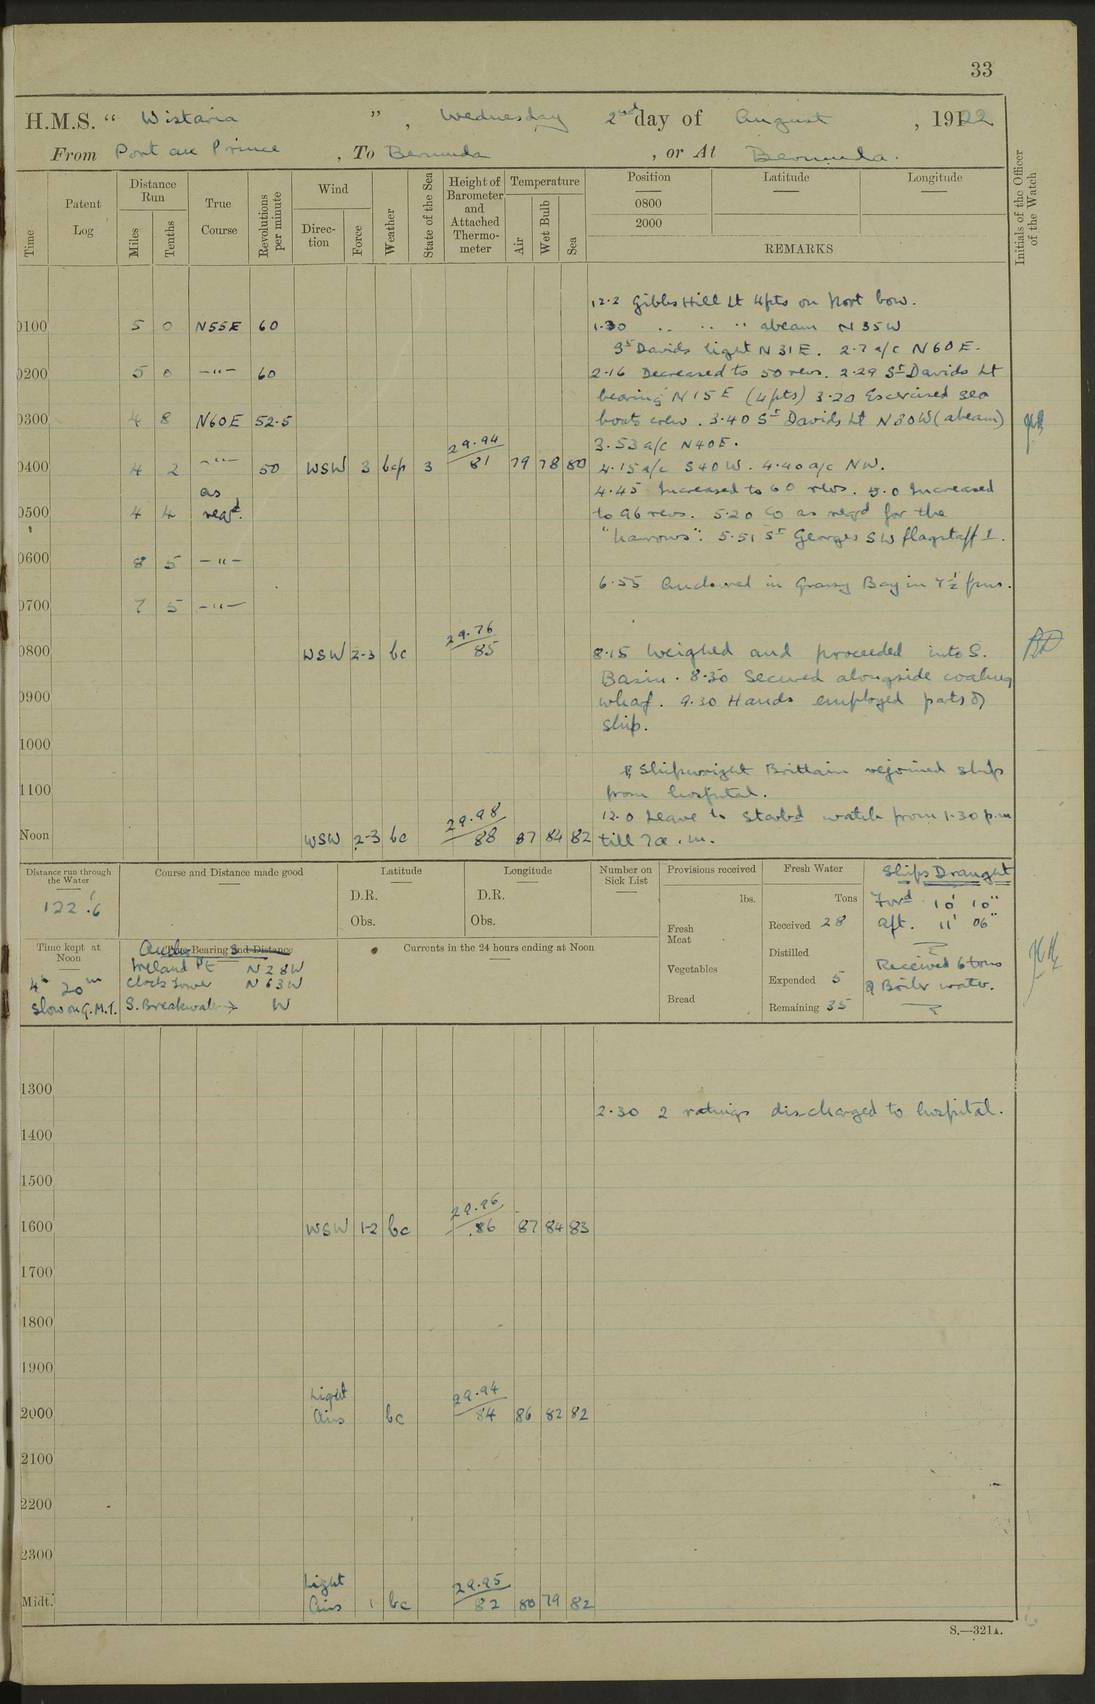 33
H.M.S. “ Wistaria ” , Wednesday 2nd day of August , 1922
From Port au Prince , To Bermuda , or At Bermuda.
Time
Patent Log
Distance Run
Miles
Tenths
True Course
Revolutions per minute
Wind
Direction
Force
Weather
State of the Sea
Height of Barometer and Attached Thermometer
Temperature
Air
Wet Bulb
Sea
Position
0800
2000
Latitude
Longitude
REMARKS
Initials of the Officer of the Watch
12.2 Gibbs Hill Lt 4pts on Port bow.
0100 5 0 N55E 60 1.30 .. .. " abeam N35W
St Davids light N31E. 2.7 a/c N60E.
0200 5 0 —"— 60 2.16 Decreased to 50 revs. 2.29 St Davids Lt
bearing N15E (4pts) 3.20 Exercised sea
0300 4 8 N60E 52.5 boats crew. 3.40 St Davids Lt N30W (abeam)
3.53 a/c N40E.
0400 4 2 —"— 50 WSW 3 bcp 3 29.94/81 79 78 80 4.15 a/c S40W. 4.40 a/c NW.
4.45 Increased to 60 revs. 5.0 Increased
0500 4 4 as reqd. to 96 revs. 5.20 Co as reqd for the
"Narrows". 5.51 St Georges SW flagstaff ⊥.
0600 8 5 —"—
6.55 Anchored in Grassy Bay in 7½ fms.
0700 7 5 —"—
0800 WSW 2-3 bc 29.76/85 8.15 Weighed and proceeded into S.
Basin. 8.30 Secured alongside coaling
0900 wharf. 9.30 Hands employed parts of
ship.
1000
Shipwright Brittain rejoined ship
1100 from hospital.
12.0 Leave to Starbd watch from 1.30 p.m
Noon WSW 2-3 bc 29.98/88 87 84 82 till 7 a.m.
Distance run through the Water
122.6
Course and Distance made good
Latitude
D.R.
Obs.
Longitude
D.R.
Obs.
Number on Sick List
Provisions received
lbs.
Fresh Meat
Vegetables
Bread
Fresh Water
Tons
Received 28
Distilled
Expended 5
Remaining 35
Ships Draught
Ford 10' 10"
aft. 11' 06"
Received 6 tons
of Boiler water.
Time kept at Noon
4h 20m
Slow on G.M.T.
True Bearing and Distance
Ireland Pt N28W
Clock Tower N63W
S. Breakwater W
Currents in the 24 hours ending at Noon
1300
2.30 2 ratings discharged to hospital.
1400
1500
1600 WSW 1-2 bc 29.96/86 87 84 83
1700
1800
1900
2000 Light Airs bc 29.94/84 86 82 82
2100
2200
2300
Midt. Light Airs 1 bc 29.95/82 80 79 82
S.—321A.